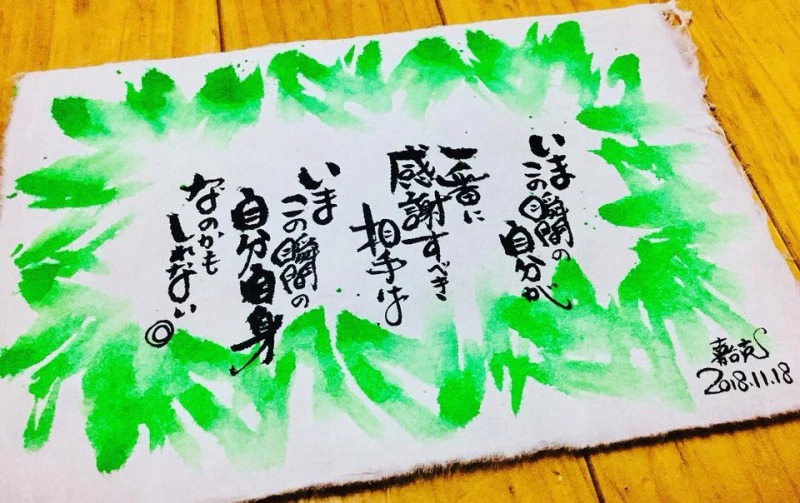 いま
この瞬間の
自分が
一番に
感謝すべき
相手は
いま
この瞬間の
自分自身
なのかも
しれない
2018.11.18